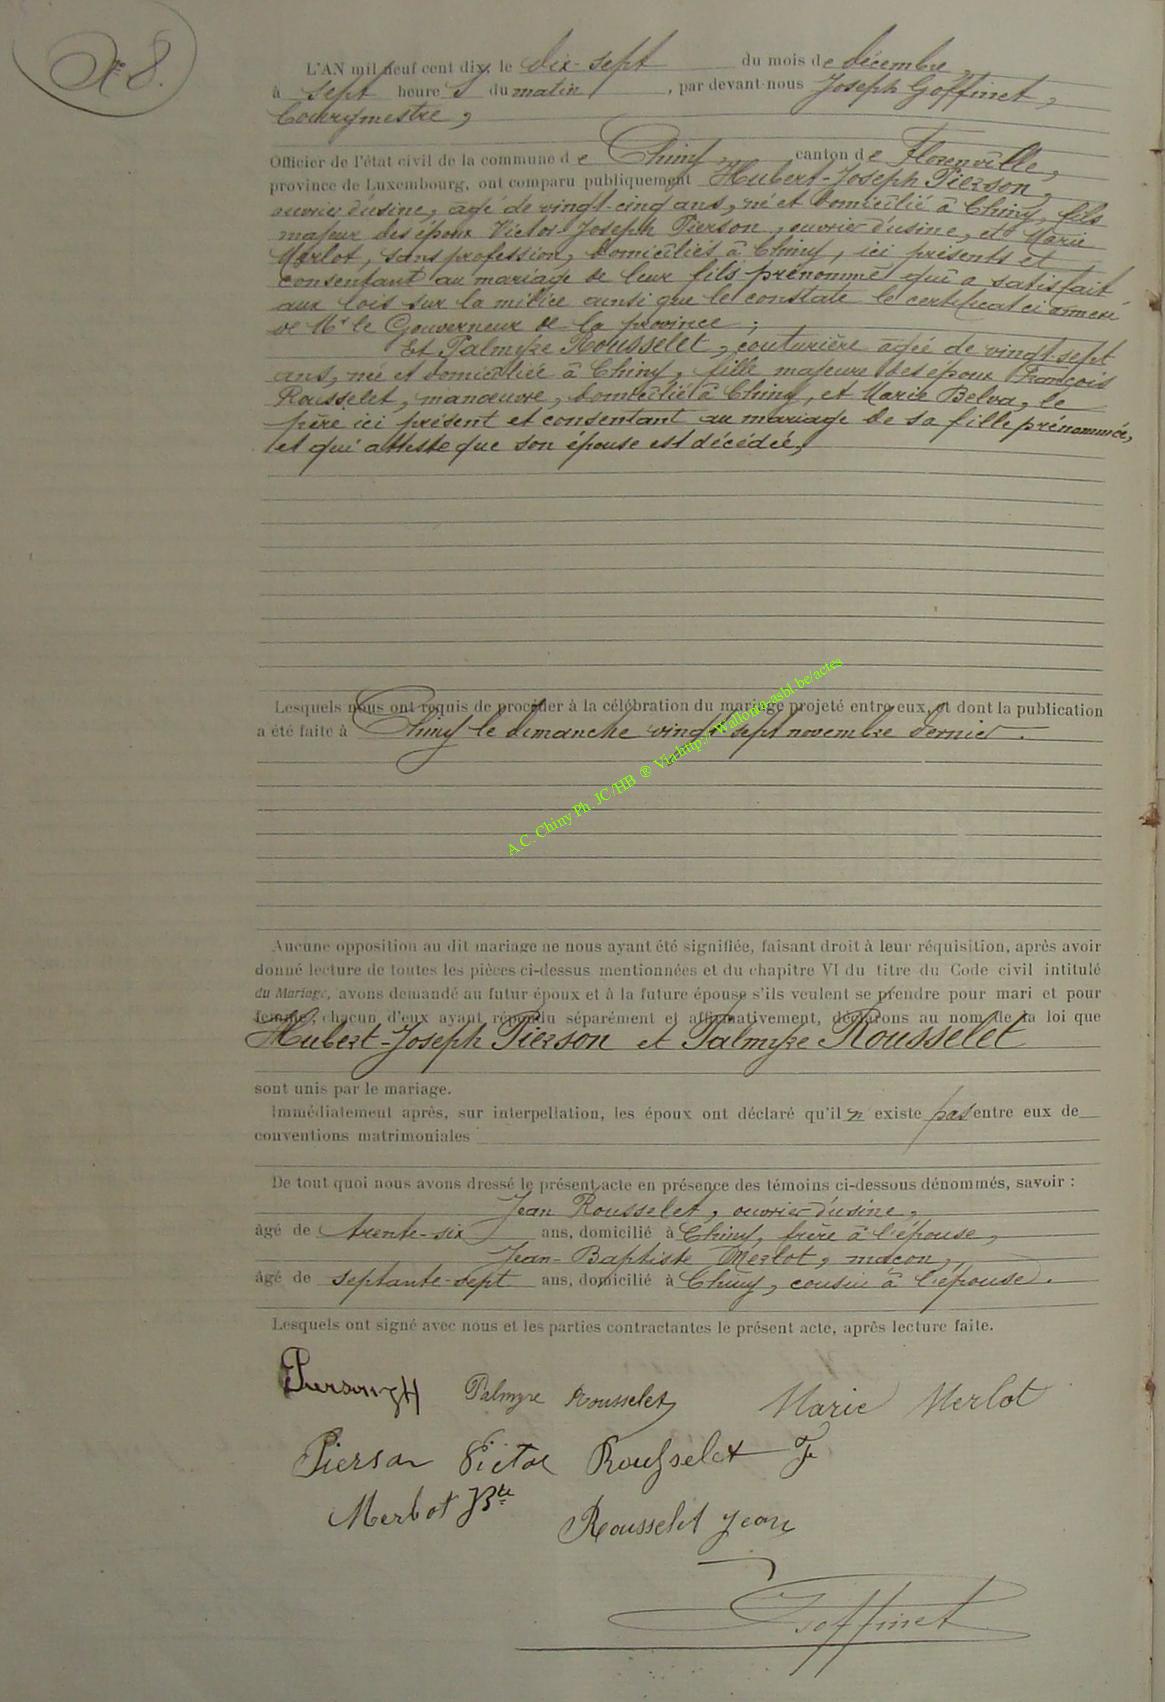 N° 8.
L'AN mil neuf cent dix, le dix-sept du mois de décembre,
à sept heures du matin, par devant-nous Joseph Goffinet,
bourgmestre,
Officier de l'état civil de la commune de Chiny, canton de Florenville,
province de Luxembourg, ont comparu publiquement Hubert-Joseph Pierson,
ouvrier d'usine, âgé de vingt-cinq ans, né et domicilié à Chiny, fils
majeur des époux Victor Joseph Pierson, ouvrier d'usine, et Marie
Merlot, sans profession, domiciliés à Chiny, ici présents et
consentant au mariage de leur fils prénommé qui a satisfait
aux lois sur la milice ainsi que le constate le certificat ci annexé
de Mr le Gouverneur de la province ;
Et Palmyre Rousselet, couturière âgée de vingt-sept
ans, née et domiciliée à Chiny, fille majeure des époux François
Rousselet, manœuvre, domicilié à Chiny, et Marie Belva, le
père ici présent et consentant au mariage de sa fille prénommée,
et qui atteste que son épouse est décédée,
Lesquels nous ont requis de procéder à la célébration du mariage projeté entre eux, et dont la publication
a été faite à Chiny le dimanche vingt-sept novembre dernier.
A.C. Chiny Ph. JC/HB ® Via http://wallonia-asbl-be/actes
Aucune opposition au dit mariage ne nous ayant été signifiée, faisant droit à leur réquisition, après avoir
donné lecture de toutes les pièces ci-dessus mentionnées et du chapitre VI du titre du Code civil intitulé
du Mariage, avons demandé au futur époux et à la future épouse s'ils veulent se prendre pour mari et pour
femme ; chacun d'eux ayant répondu séparément et affirmativement, déclarons au nom de la loi que
Hubert-Joseph Pierson et Palmyre Rousselet
sont unis par le mariage.
Immédiatement après, sur interpellation, les époux ont déclaré qu'il n'existe pas entre eux de
conventions matrimoniales
De tout quoi nous avons dressé le présent acte en présence des témoins ci-dessous dénommés, savoir :
Jean Rousselet, ouvrier d'usine,
âgé de trente-six ans, domicilié à Chiny, frère à l'épouse,
Jean-Baptiste Merlot, maçon,
âgé de septante-sept ans, domicilié à Chiny, cousin à l'épouse.
Lesquels ont signé avec nous et les parties contractantes le présent acte, après lecture faite.
Pierson H Palmyre Rousselet Marie Merlot
Pierson Victor Rousselet F
Merlot JBte Rousselet Jean
Goffinet